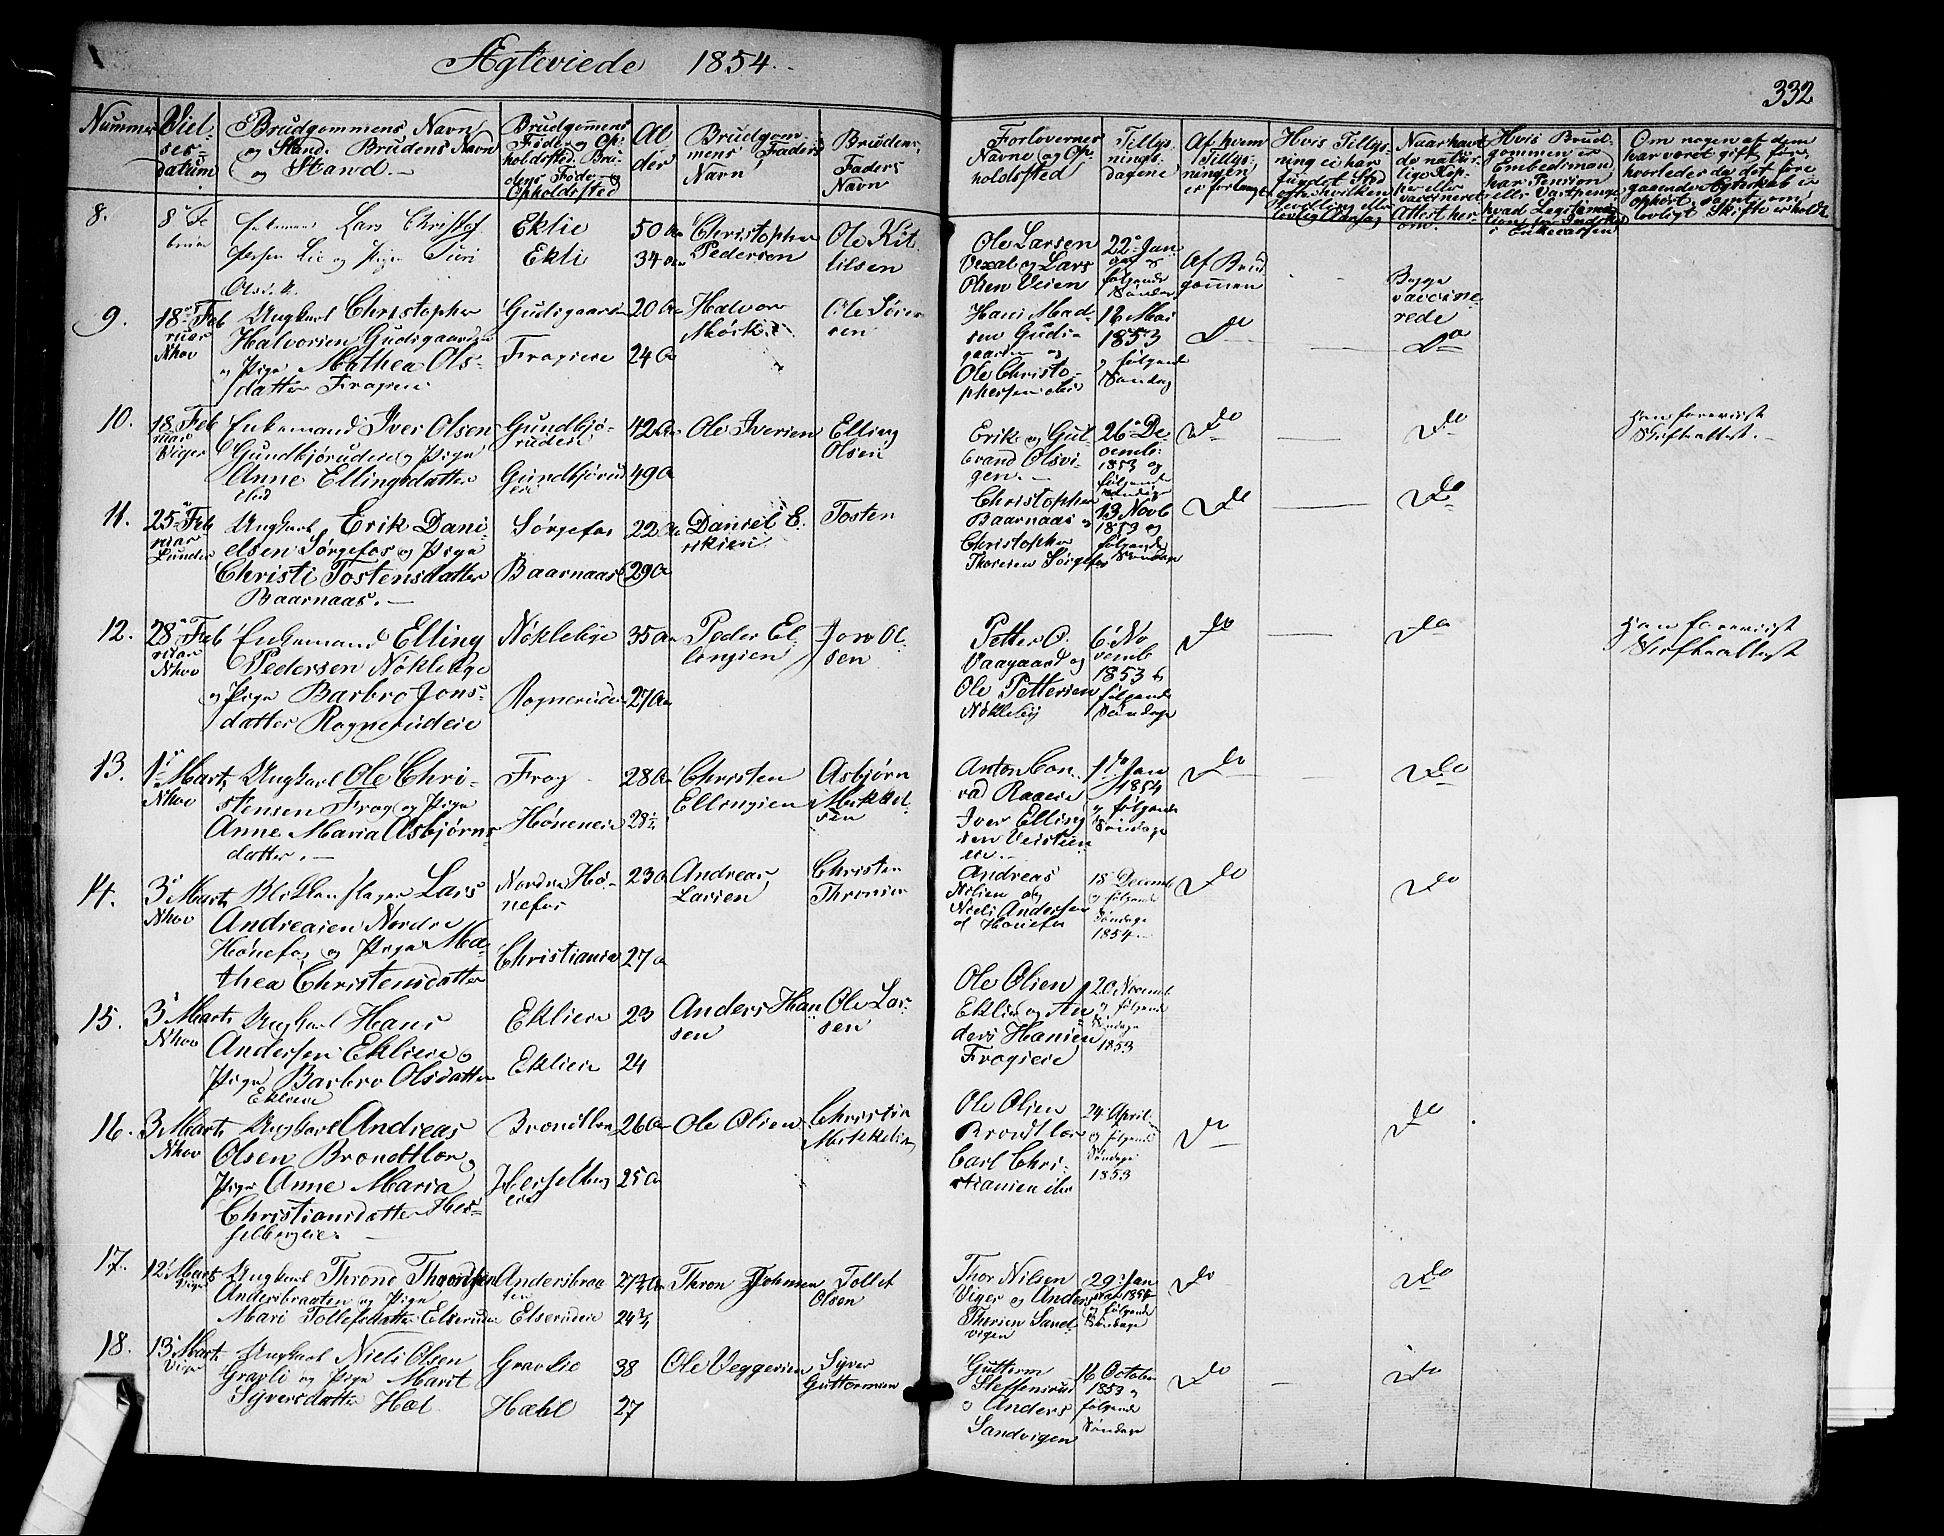 Ægteviede 1854.
332
Nummer
Viel-
ses-
datum
Brudgommens Navn
og Stand. Brudens Navn
og Stand.
Brudgommens
Føde og Op-
holdssted. Bru-
dens Føde og
Opholdssted
Al
der
Brudgom-
mens Faders
Navn
Brudens
Faders
Navn
Forlovernes
Navne og Op-
holdssted
Tillys-
nings-
dagene
Af hvem
Tillys-
ningen
er forlangt
Hvis Tillys-
ning ei har
fundet Sted
Naar havt
de natur-
lige Kop-
per eller
vaccineret
Attest her-
om.
Hvis Brud-
gommen er
Embedsman
har Pension
eller Vartpenge
Om nogen af dem
har været gift før,
hvorledes da det fore-
gaaende Ægteskab er
ophørt, samt om
lovligt Skifte er holdt
8.
8 Fe
bruar
Enkemand Lars Christof
fersen Lie og Pige Siri
Olsd.
Eklie
Ekli
50 Aar
34 Aar
Christopher
Pedersen
Ole Kit-
tilsen
Ole Larsen
Vexal og Lars
Olsen Veien
22 Jan
og
følgende
Søndage
Af Brud
gommen
Begge
vaccine-
rede
9.
18 Feb
ruar
Nhov
Ungkarl Christopher
Halvorsen Gudsgaarden
og Pige Mathea Ols-
datter Frogeie
Gudsgaarden
Frogeie
20 Aar
24 A
Halvor
Mørk
Ole
sen
Hans Mad-
sen Guds-
gaarden og
Ole Christo-
phersen ibid
12 Mai
1853
og følgende
Søndag
Do
Do
10.
18 Feb
ruar
Viger
Enkemand Iver Olsen
Gundbjørudeie og Pige
Anne Ellingsdatter
ibid
Gundbjø-
rudeie
Gundbjørud
eie
42 Aar
49 A
Ole Iversen
Elling
Olsen
Erik og Gul-
brand Olsvi-
gen.
26 De-
cemb.
1853 og
følgende
Søndage
Do
Do
Han foreviist
Skifteattest.
11.
25 Feb
ruar
Lunder
Ungkarl Erik Dani-
elsen Sørgefos og Pige
Christi Tostensdatter
Baarnaas.
Sørgefos
Baarnaas
22 Aar
29 A
Daniel E-
riksen
Tosten
Christopher
Baarnaas og
Christopher
Thoresen Sørgefos
13 Novb
1853 og
følgende
Søndage
Do
Do
12.
28 Feb
ruar
Nhov
Enkemand Elling
Pedersen Nøklebye
og Pige Barbro Jons-
datter Rognerudeie
Nøklebye
Rognerudeie
35 Aar
27 Aar
Peder El-
lingsen
Jon Ol-
sen
Petter O.
Vaagaard og
Ole Pettersen
Nøkleby
6 No
vemb
1853 &
følgende
Søndage
Do
Do
Han foreviist
Skifteattest
13.
1 Marts
Nhov
Ungkarl Ole Chri-
stensen Frog og Pige
Anne Maria Asbjørns-
datter.
Frog
Høneneie
28 Aar
28½
Christen
Ellingsen
Asbjørn
Mikkel-
sen
Anton Con-
rad Raaeie
Iver Elling
sen Veisteen
eie.
1 Jan
1854
og følgende
Søndage
Do
Do
14.
3 Marts
Nhov
Blikkenslager Lars
Andreasen Nordre
Hønefos og Pige Ma-
thea Christensdatter
Nordre Hø-
nefos
Christiania
23 A
27 A
Andreas
Larsen
Christen
Thronsen
Andreas
Nilsen og
Niels Andersen
af Hønefos
18 Decemb
og følgende
Søndage
1854.
Do
Do
15.
3 Marts
Nhov
Ungkarl Hans
Andersen Eklieeie og
Pige Barbro Olsdatter
Eklieeie
Eklieeie
Eklieeie
23
24
Anders Han-
sen
Ole Lar-
sen
Ole Olsen
Eklie og An-
ders Hansen
Frogeie
20 Novemb
og følgende
Søndage
1853
16.
3 Marts
Nhov
Ungkarl Andreas
Olsen Brondtlor og
Pige Anne Maria
Christiansdatter Hes-
selbergeie.
Hesselberg
eie
26 A
25 A
Ole Olsen
Christian
Mikkelsen
Ole Olsen
Carl Chri-
stiansen ibd
24 April
og følgende
Søndage
1853
Do
Do
17.
12 Marts
Viger
Ungkarl Thrond Throndsen
Andersbraaten og Pige
Mari Tollefsdatter Elserudeie
Andersbraa
ten
Elserudeie
27¾ Aar
24¾
Thron Johnsen
Tollef
Olsen
Thor Nilsen
Viger og Anders
Thorsen Sand-
vigen
29 Jan
uar 1854
og følgende
Søndage
Do
Do
18.
13 Marts
Viger
Ungkarl Niels Olsen
Gravli og Pige Marit
Syversdatter Hæl
Gravlie
Hæhl
38
27
Ole Veggersen
Syver
Guttormsen
Guttorm
Steffensrud
og Anders
Sandvigen
16 October
1853 og
følgende
Søndage
Do
Do